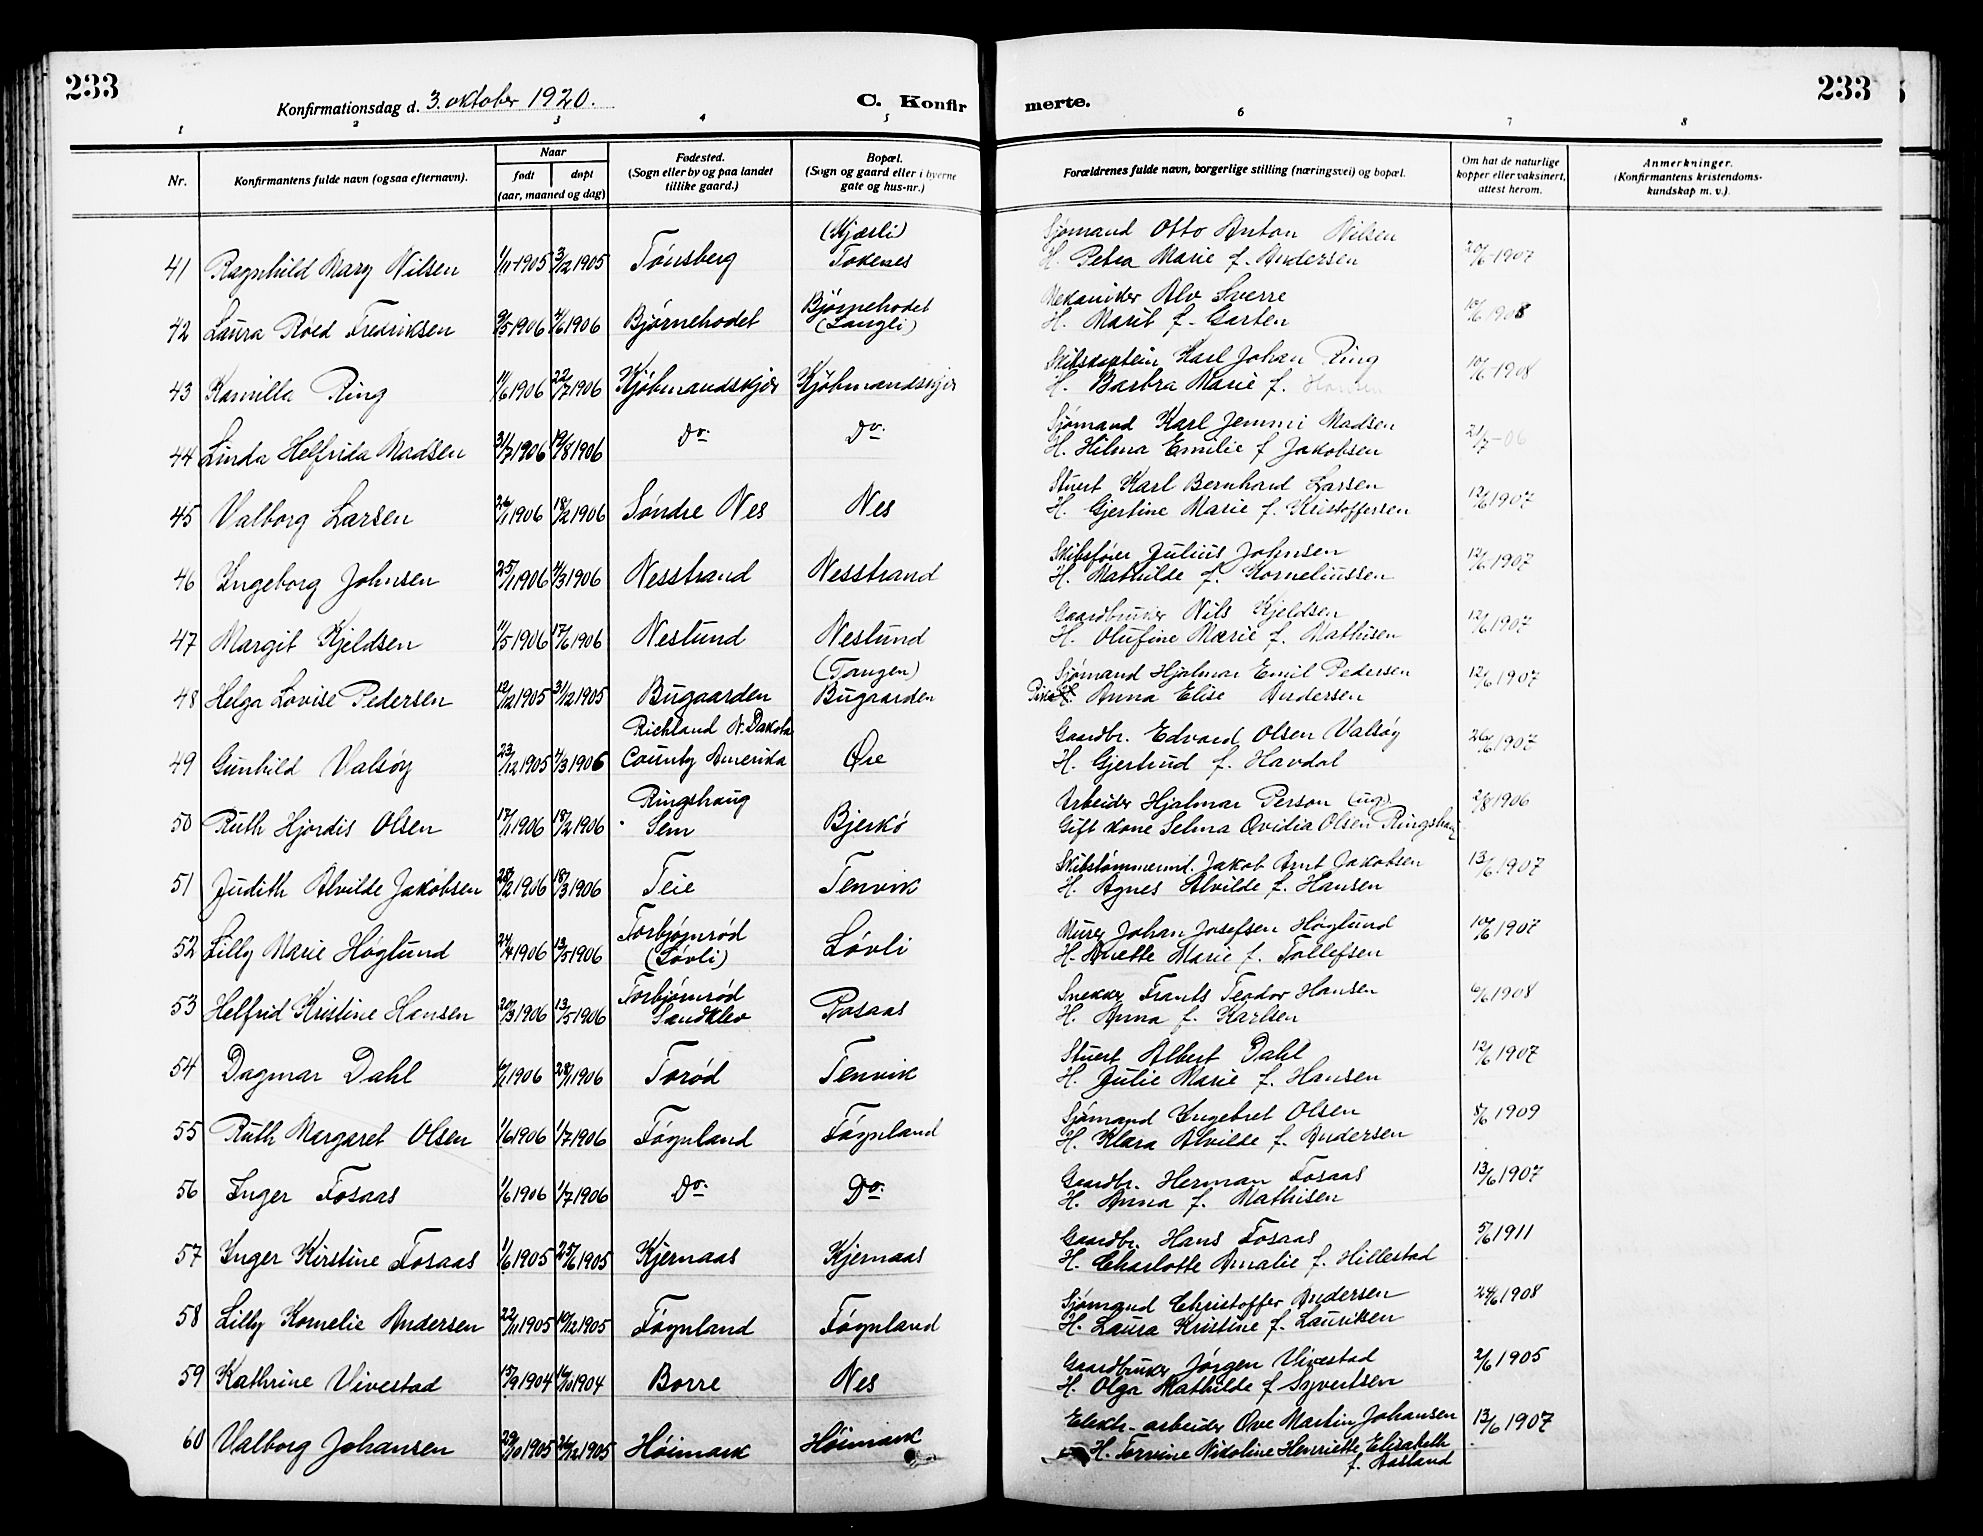 233
Konfirmationsdag d. 3. oktober 1920.
C. Konfir
merte.
233
1 2 3 4 5 6 7 8
Nr.
Konfirmantens fulde navn (ogsaa efternavn).
Naar
født døpt
(aar, maaned og dag)
Fødested.
(Sogn eller by og paa landet
tillike gaard.)
Bopæl.
(Sogn og gaard eller i byerne
gate og hus-nr.)
Forældrenes fulde navn, borgerlige stilling (næringsvei) og bopæl.
Om hat de naturlige
kopper eller vaksinert,
attest herom.
Anmerkninger.
(Konfirmantens kristendoms-
kundskap m. v.).
(Kjærli) Sjømand Otto Anton Nilsen
41 Ragnhild Mary Nilsen 1/1 1905 3/2 1905 Tønsberg Tokenes H. Petra Marie f. Andersen 20/6 1907
Bjørnehodet Mekaniker Alv Sverre
42 Laura Røed Fredriksen 9/5 1906 4/6 1906 Bjørnehodet (Langli) H. Marit f. Garten 10/6 1908
Skibskaptein Karl Johan Ring
43 Kamilla Ring 11/6 1906 22/7 1906 Kjøbmandskjær Kjøbmandskjær H. Barbra Marie f. 10/6 1908
Sjømand Karl Jemmi Madsen
44 Linda Helfrida Madsen 31/7 1906 19/8 1906 Do. Do. H. Hilma Emilie f. Jakobsen 21/7-06
Stuert Karl Bernhard Larsen
45 Valborg Larsen 26/1 1906 18/2 1906 Søndre Nes Nes H. Gjertine Marie f. Kristoffersen 12/6 1907
Skibsfører Julius Johnsen
46 Ingeborg Johnsen 25/1 1906 4/3 1906 Nesstrand Nesstrand H. Mathilde f. Korneliussen 12/6 1907
Gaardbruker Nils Kjeldsen
47 Margit Kjeldsen 11/5 1906 17/6 1906 Neslund Neslund H. Olufine Marie f. Mathisen 12/6 1907
(Tangen) Sjømand Hjalmar Emil Pedersen
48 Helga Lovise Pedersen 12/12 1905 31/12 1905 Bugaarden Bugaarden Pike Anna Elise Andersen 12/6 1907
Richland N. Dakota Gaardbr. Edvard Olsen Valsøy
49 Gunhild Valsøy 23/12 1905 4/3 1906 County Amerika Øre H. Gjertrud f. Havdal 26/6 1907
Ringshaug Arbeider Hjalmar Person (ug).
50 Ruth Hjørdis Olsen 17/1 1906 18/2 1906 Sem Bjerkø Gift kone Selma Ovidia Olsen Ringshaug 2/8 1906
Skibstømmermd. Jakob Arnt Jakobsen
51 Judith Alvilde Jakobsen 28/2 1906 18/3 1906 Teie Tenvik H. Agnes Alvilde f. Hansen 13/6 1907
Torbjørnrød Murer Johan Josefsen Høglund
52 Lilly Marie Høglund 24/4 1906 13/5 1906 (Løvli) Løvli H. Anette Marie f. Tollefsen 10/6 1907
Torbjørnrød Snekker Frants Teodor Hansen
53 Helfrid Kristine Hansen 20/3 1906 13/5 1906 Sandklev Rosaas H. Anna f. Karlsen 6/6 1908
Stuert Albert Dahl
54 Dagmar Dahl 6/1 1906 28/1 1906 Torød Tenvik H. Julie Marie f. Hansen 12/6 1907
Sjømand Ingebret Olsen
55 Ruth Margaret Olsen 1/6 1906 1/7 1906 Føynland Føynland H. Klara Alvilde f. Andersen 8/6 1909
Gaardbr. Herman Fosaas
56 Inger Fosaas 1/6 1906 1/7 1906 Do. Do. H. Anna f. Mathisen 13/6 1907
Gaardbr. Hans Fosaas
57 Inger Kirstine Fosaas 1/6 1905 25/6 1905 Kjernaas Kjernaas H. Charlotte Amalie f. Hillestad 5/6 1911
Sjømand Christoffer Andersen
58 Lilly Kornelie Andersen 22/11 1905 19/12 1905 Føynland Føynland H. Laura Kristine f. Lauriksen 24/6 1908
Gaardbruker Jørgen Vivestad
59 Kathrine Vivestad 15/9 1904 16/10 1904 Borre Nes H. Olga Mathilde f. Syvertsen 2/6 1905
Elektr.-arbeider Ove Martin Johansen
60 Valborg Johansen 29/10 1905 26/12 1905 Høimark Høimark H. Torvine Nikoline Henriette Elisabeth 13/6 1907
f. Aasland